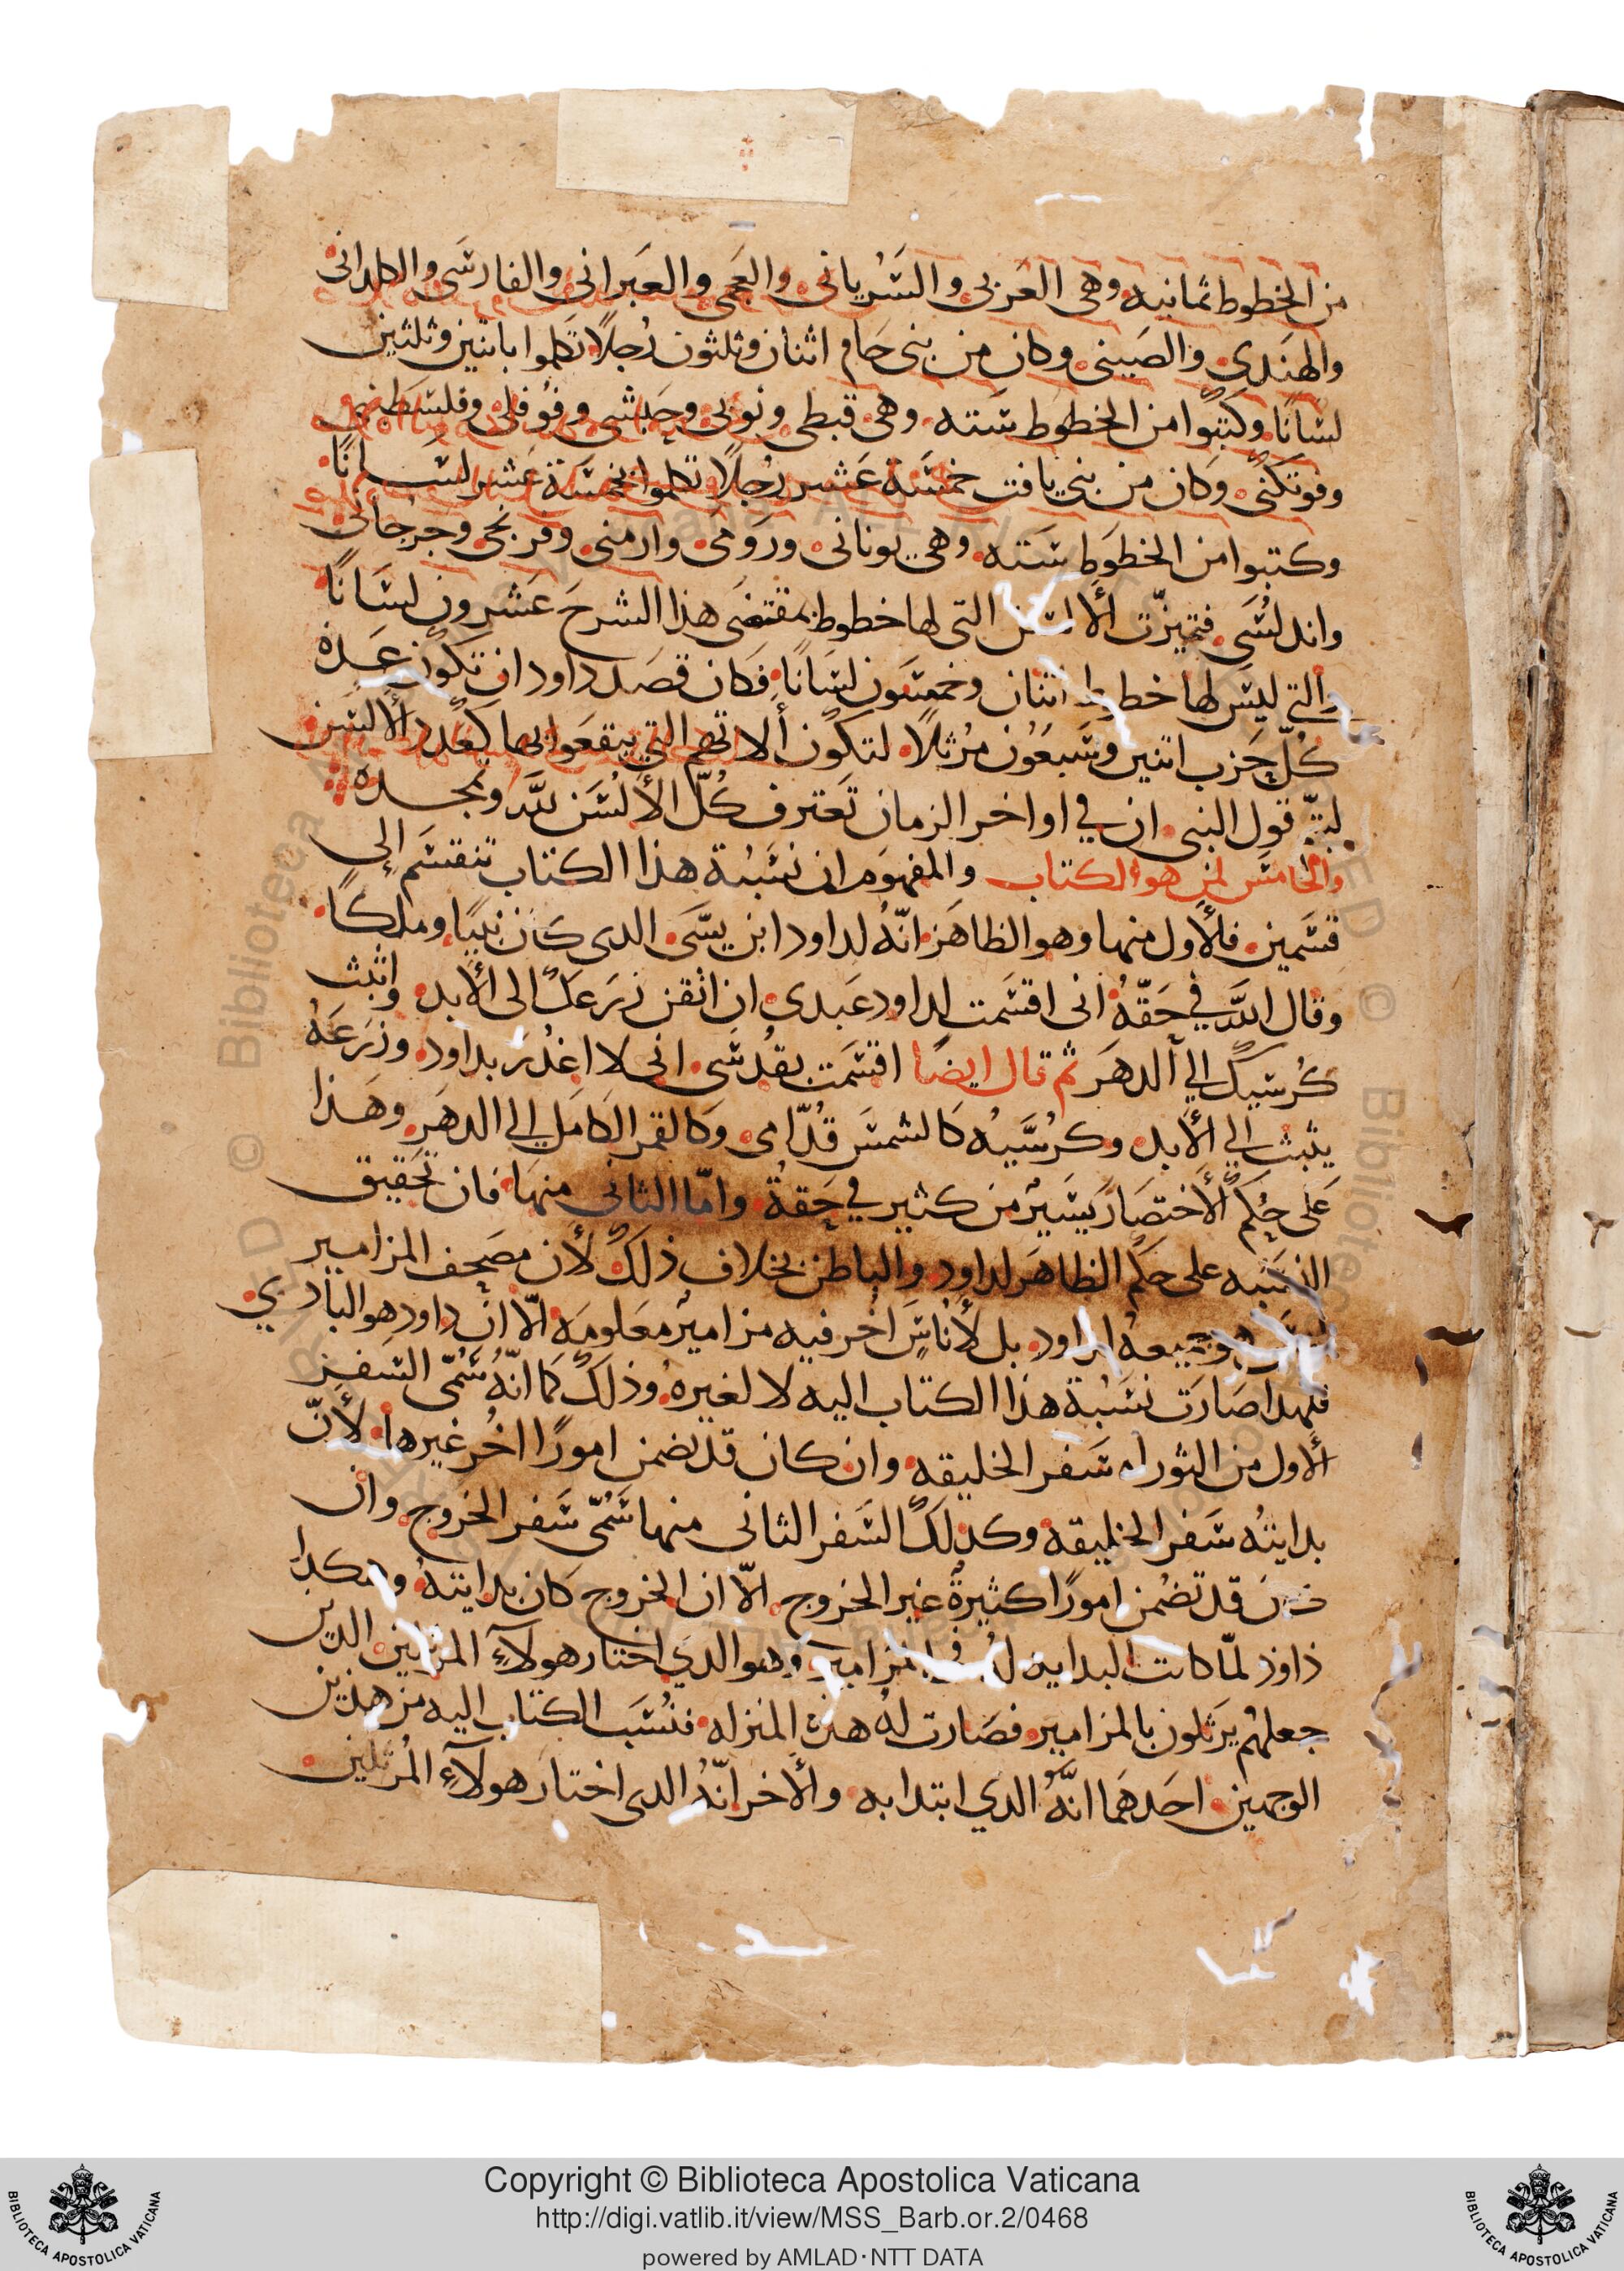 من الخطوط ثمانيه وهى العربى والسريانى والعجمى والعبرانى والفارسى والكلدانى
والهندى والصينى وكان من بنى حام اثنان وثلثون رجلًا تكلموا باثنين وثلثين
لسانًا وكتبوا من الخطوط سته وهى قبطى ونوبى وحبشى وفوفلى وفلسطينى
وفونكنى وكان من بنى يافت خمسة عشر رجلًا تكلموا بخمسة عشر لسانًا
وكتبوا من الخطوط سته وهى يونانى ورومى وارمنى وفرنجى وجرجانى
واندلسى فتميزت الألسن التى لها خطوط بمقتضى هذا الشرح عشرون لسانًا
والتى ليس لها خطوط اثنان وخمسون لسانًا فكان قصد داود ان تكون عدة
كل حزب اثنين وسبعون مرتلًا لتكون ألاتهم التي يبقعوا بها كعدد الألسن
ليتم قول النبى ان في اواخر الزمان تعترف كُلّ الألسن لله وتمجده
والخامس لمن هو الكتاب والمفهوم ان نسبة هذا الكتاب تنقسم إلى
قسمين فلأول منها وهو الظاهر انّه لداود ابن يسّى الدى كان نبيًا وملكًا
وقال الله في حقّه انى اقسمت لداود عبدى ان اتقن زرعك الى الأبد واثبت
كرسيك الي الدهر ثم قال ايضًا اقسمت بقدسى انى لا اغدر بداود وزرعه
يثبت الي الأبد وكرسيه كالشمس قدّامى وكالقمر الكامل الي الدهر وهذا
على حكم الأختصار يسير من كثير في حقه وامّا الثانى منها فان تحقيق
النسبه على حكم الظاهر لداود والباطن بخلاف ذلك لأن مصحف المزامير
ليس هو جميعه لداود بل لأناسٍ اخر فيه مزامير معلومه الّا ان داود هو البادي
فلهدا صارت نسبة هذا الكتاب اليه لا لغيره وذلك كما انّه سُمّى السفر
الاول من التوراه سفر الخليقه وان كان قد تضمن امورًا اخر غيرها لأنّ
بدايته سفر الخليقه وكدلك السفر الثانى منها سُمّى سفر الخروج وان
كان قد تضمن امورًا كثيرة غير الخروج الّا ان الخروج كان بدايته وهكدا
داود لمّا كانت البدايه له في المزامير وهو الدي اختار هولآءِ المرتلين الدين
جعلهم يرتلون بالمزامير فصارت له هذه المنزله فنُسب الكتاب اليه من هذين
الوجهين احدهما انّه الدي ابتدا به والأخر انّه الدى اختار هولآءِ المرتلين
Copyright © Biblioteca Apostolica Vaticana
http://digi.vatlib.it/view/MSS_Barb.or.2/0468
powered by AMLAD·NTT DATA